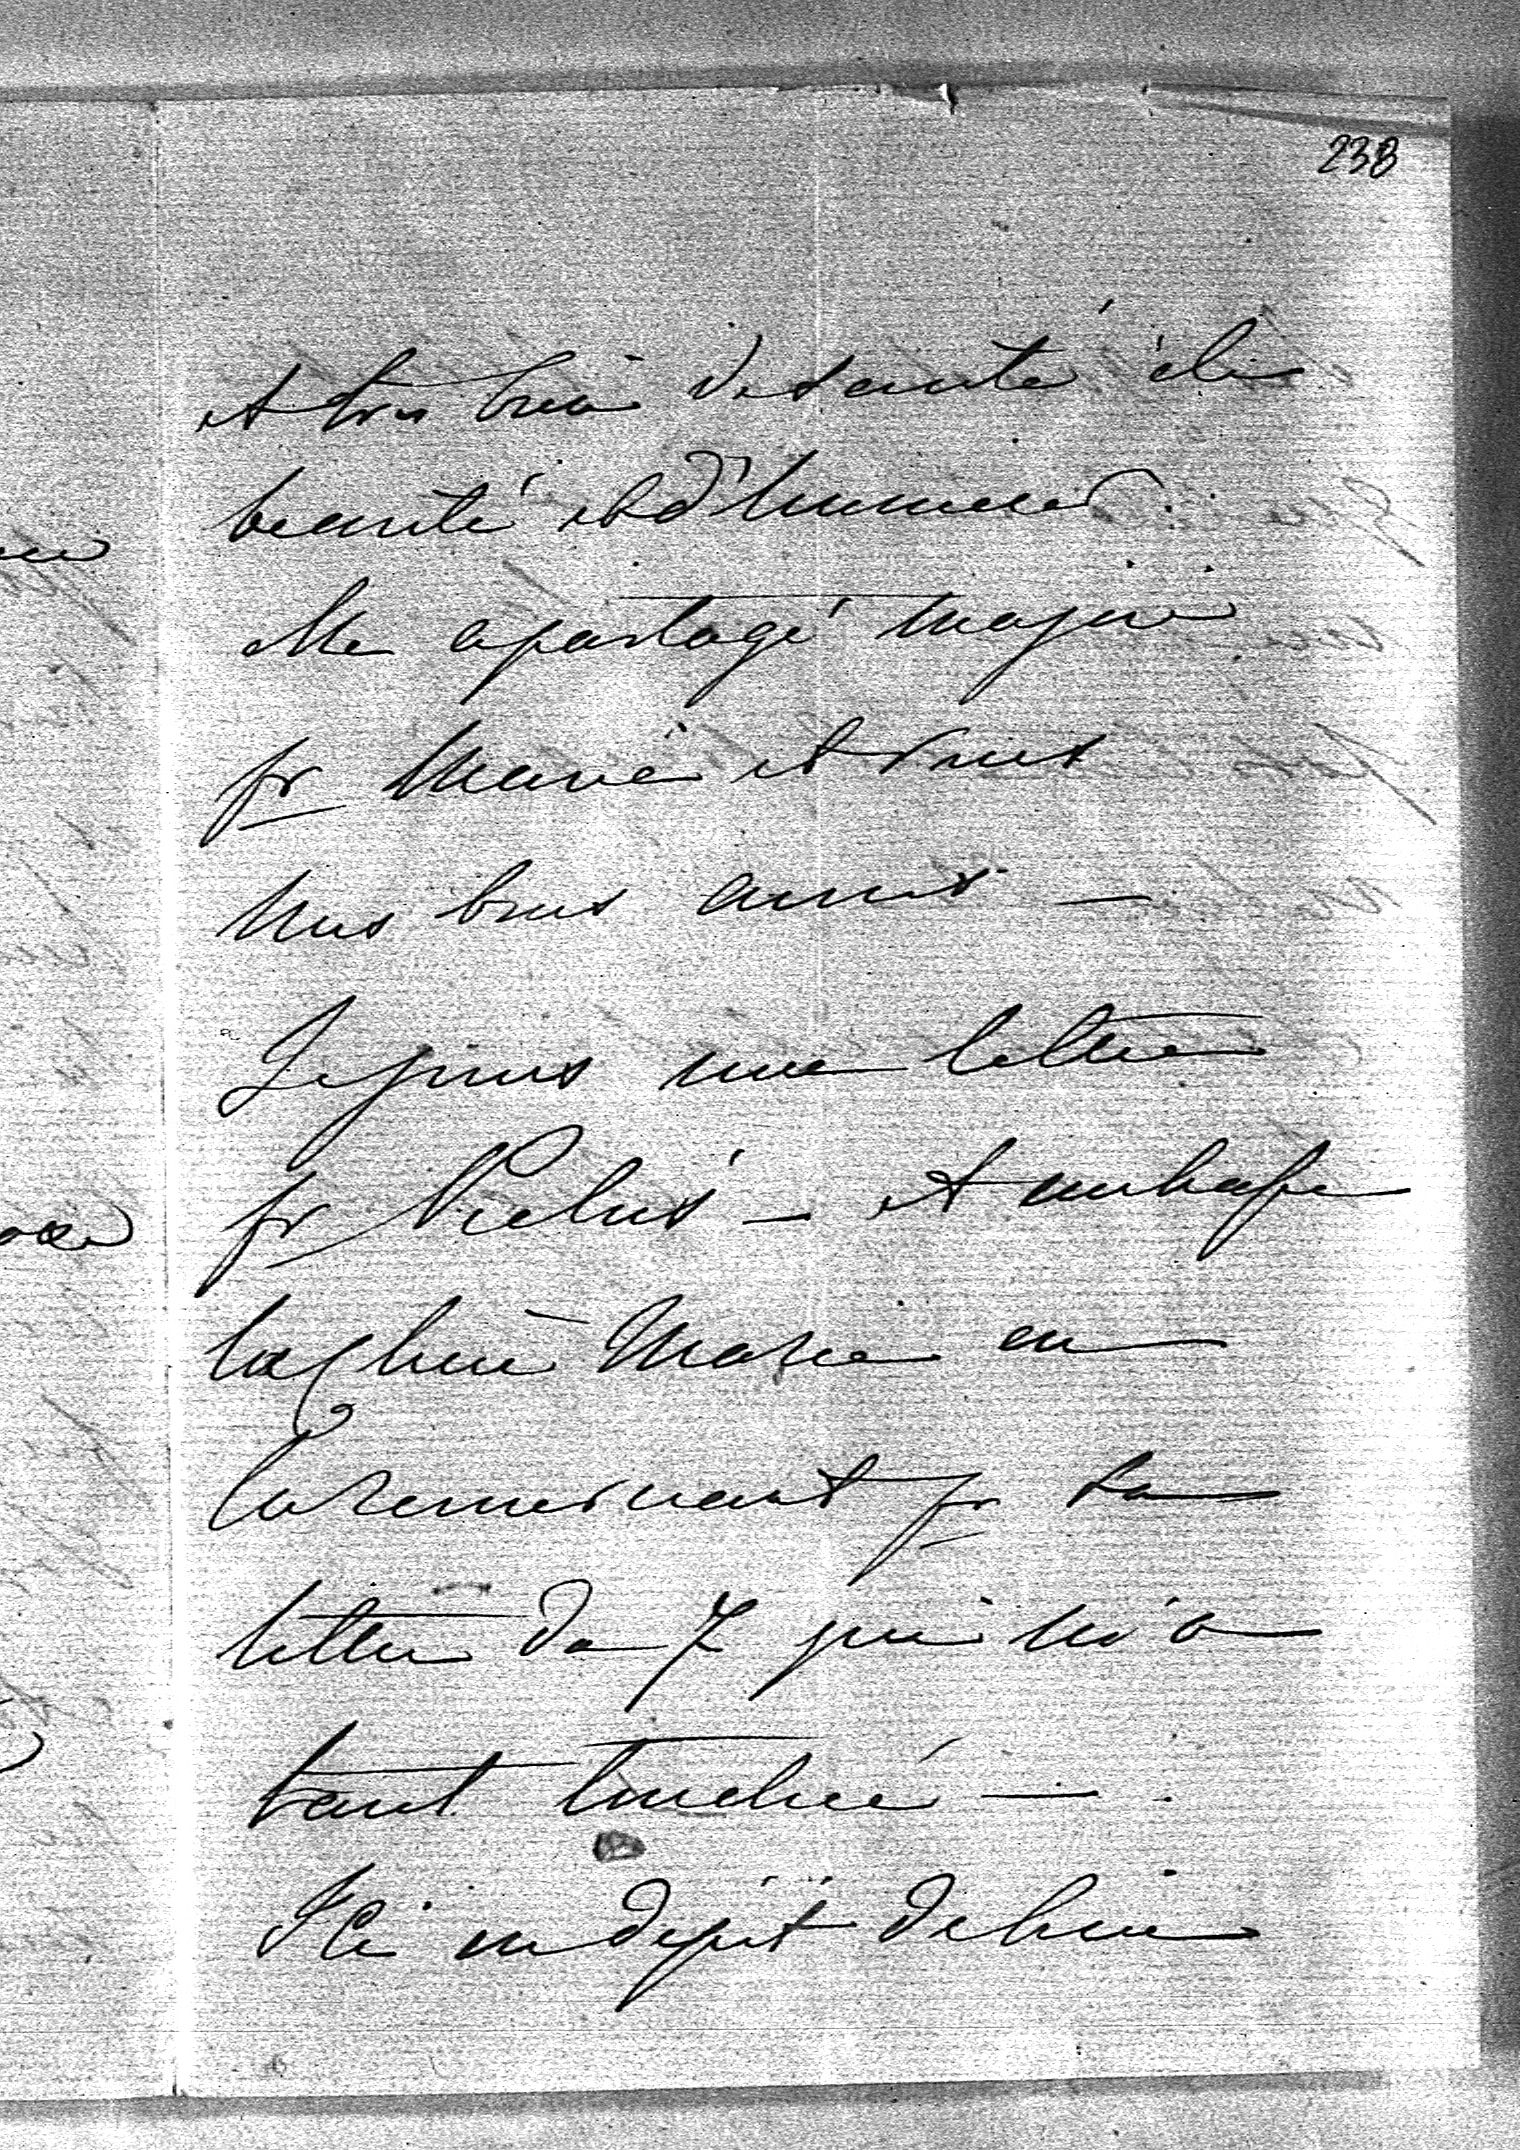 238
et très bien de santé de
beauté et d'humeur.
Elle a partagé ma joie
pr Marie et vous
mes bons amis —
Je joins une lettre
pr Nicolas — et embrasse
la chère Marie en
la remerciant pr sa
lettre du 7 qui m'a
tant touchée —
Ici en dépit de